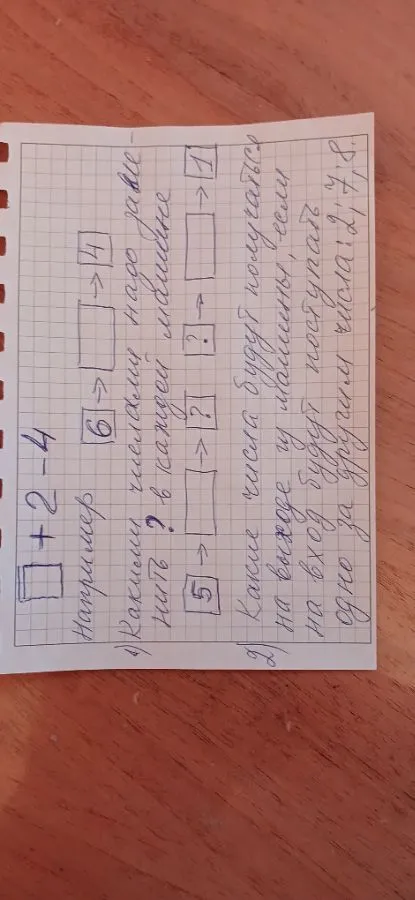 □ + 2 - 4
Например 6 → □ → 4
1) Какими числами надо заме-
нить ? в каждой машине
5 → □ → ? ? → □ → 1
2) Какие числа будут получаться
на выходе из машины, если
на вход будут поступать
одно за другим числа: 2; 7; 8.